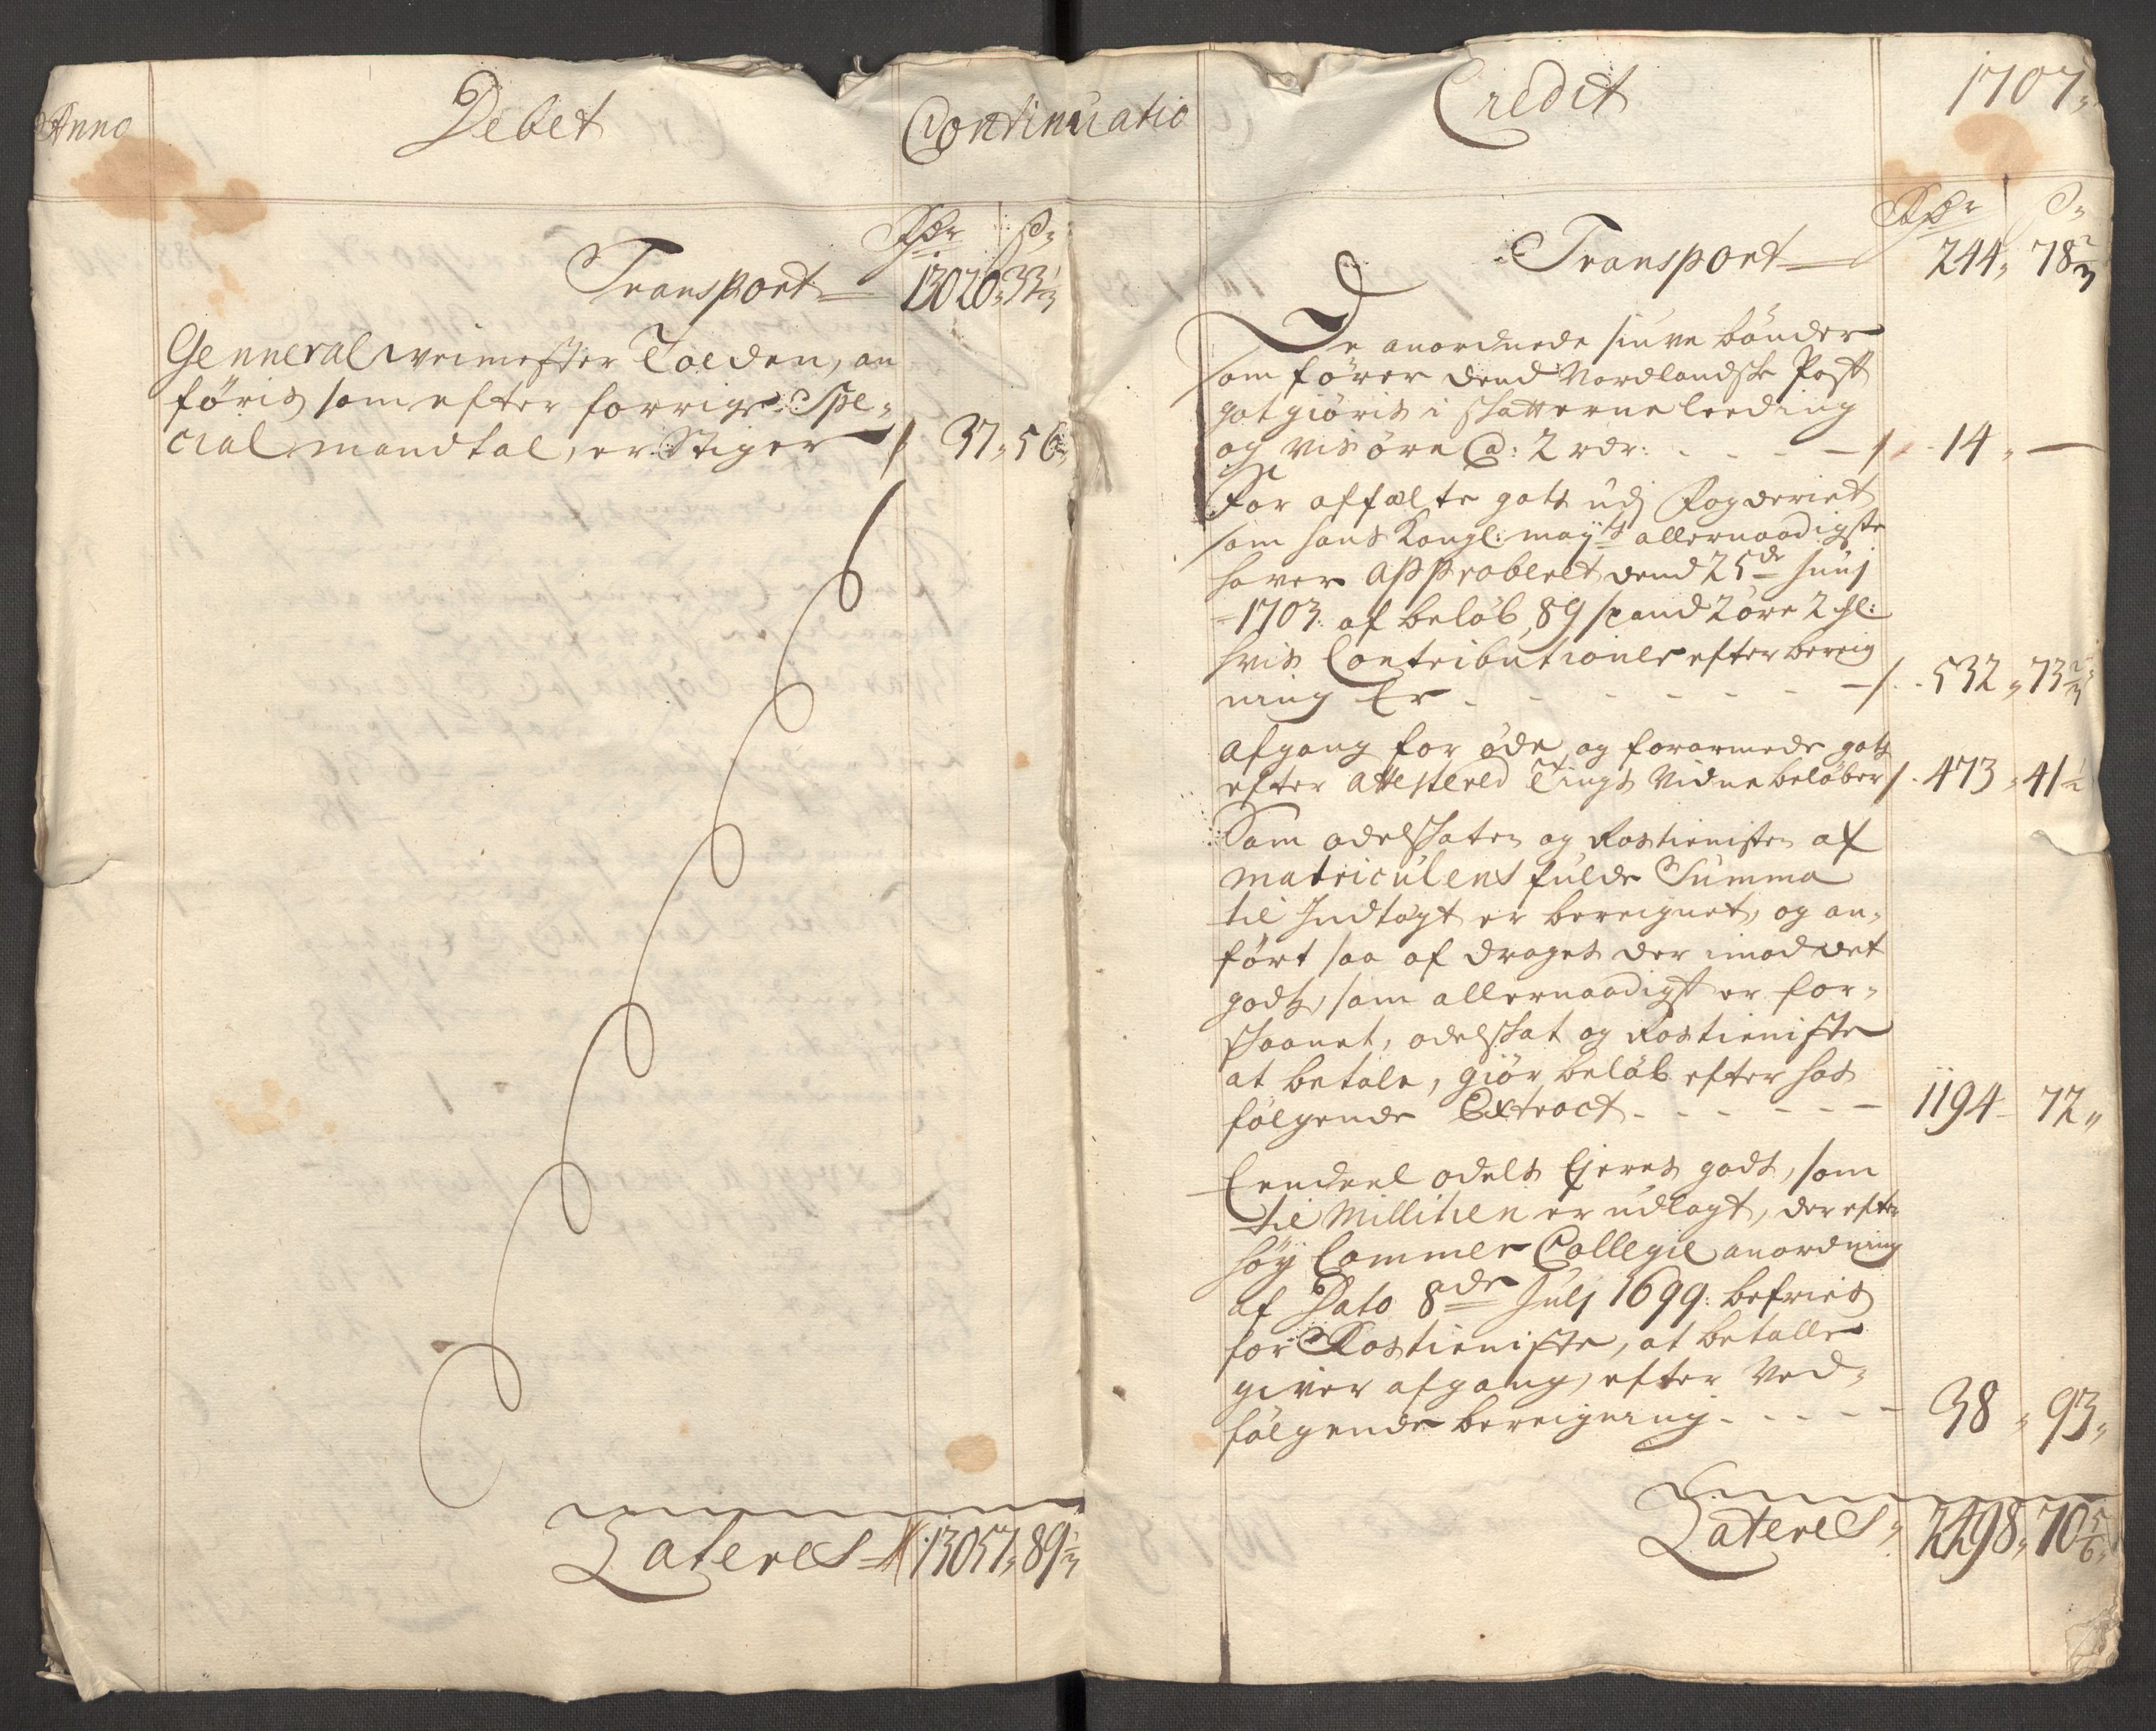 Anno Debet Continuatio
Rdr ß
Transport 13020 33 1/3
Genneral Veimester Tolden, an
føris som efter forrige Spe,
cial mandtal, er Stiger / 37 56
Lateres 13057 89 1/3
Credit 1707
Rdr ß
Transport 244 78 2/3
De anordnede siuve bønder
som fører dend Nordlandsk Post
gotgiøris i skatterne leeding
og visøre @: 2 rdr: - - - / 14 —
For affælte gots udj Fogderiet
som hans Kongl: mayts allernaadigste
haver approberet dend 25de Junj
1703. af beløb 89 spand 2 øre 2 sl:
hvis Contributioner efter bereig
ning Er - - - / 532 73 2/3
Afgang for øde og forarmede gots
efter Attestered Tings Vidne beløber / 473 41 1/2
Som odelskaten og Rostienisten af
Matriculens fulde Summa
til Indtægt er bereignet, og an,
ført saa af drages der imod det
godts, som allernaadigst er for,
skaanet, odelskat og Rostieniste
at betale, giør beløb efter hos
følgende Extract - - - 1194 72
Eendeel odels Ejeres gods, som
til Millitien er udlagt, der efter
høy Cammer Collegie anordning
af Dato 8de Julj 1699. befries
for Rostieniste, at betalle
giver afgang, efter Ved,
følgende bereigning - - - 38 93
Lateres 2498 70 5/6